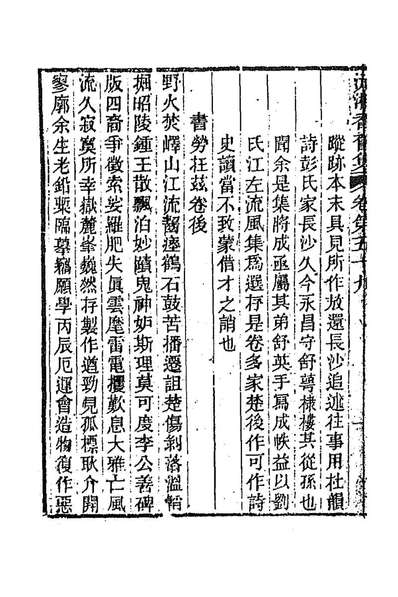 沅湘耆舊集 卷第五十九
蹤跡本末具見所作放還長沙追述往事用杜韻
詩彭氏家長沙久今永昌守舒萼棣樓其從孫也
聞余是集將成亟屬其弟舒英手寫成帙益以劉
氏江左流風集爲選存是卷多家楚後作可作詩
史讀當不致蒙借才之誚也
書勞在茲卷後
野火焚嶧山江流齧瘞鶴石鼓苦播遷詛楚傷剝落溫韜
掘昭陵鍾王散飄泊妙蹟鬼神妬斯理莫可度李公善碑
版四裔爭徵索娑羅肥失眞雲麾雷電攫歎息大雅亡風
流久寂寞所幸嶽麓峯巍然存製作遒勁見孤標耿介開
寥廓余生老鉛槧臨摹竊願學丙辰厄運會造物復作惡